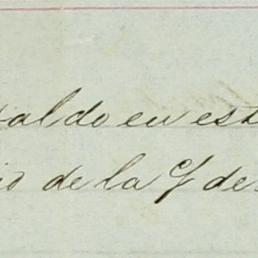 saldo en est
io de la Cf de